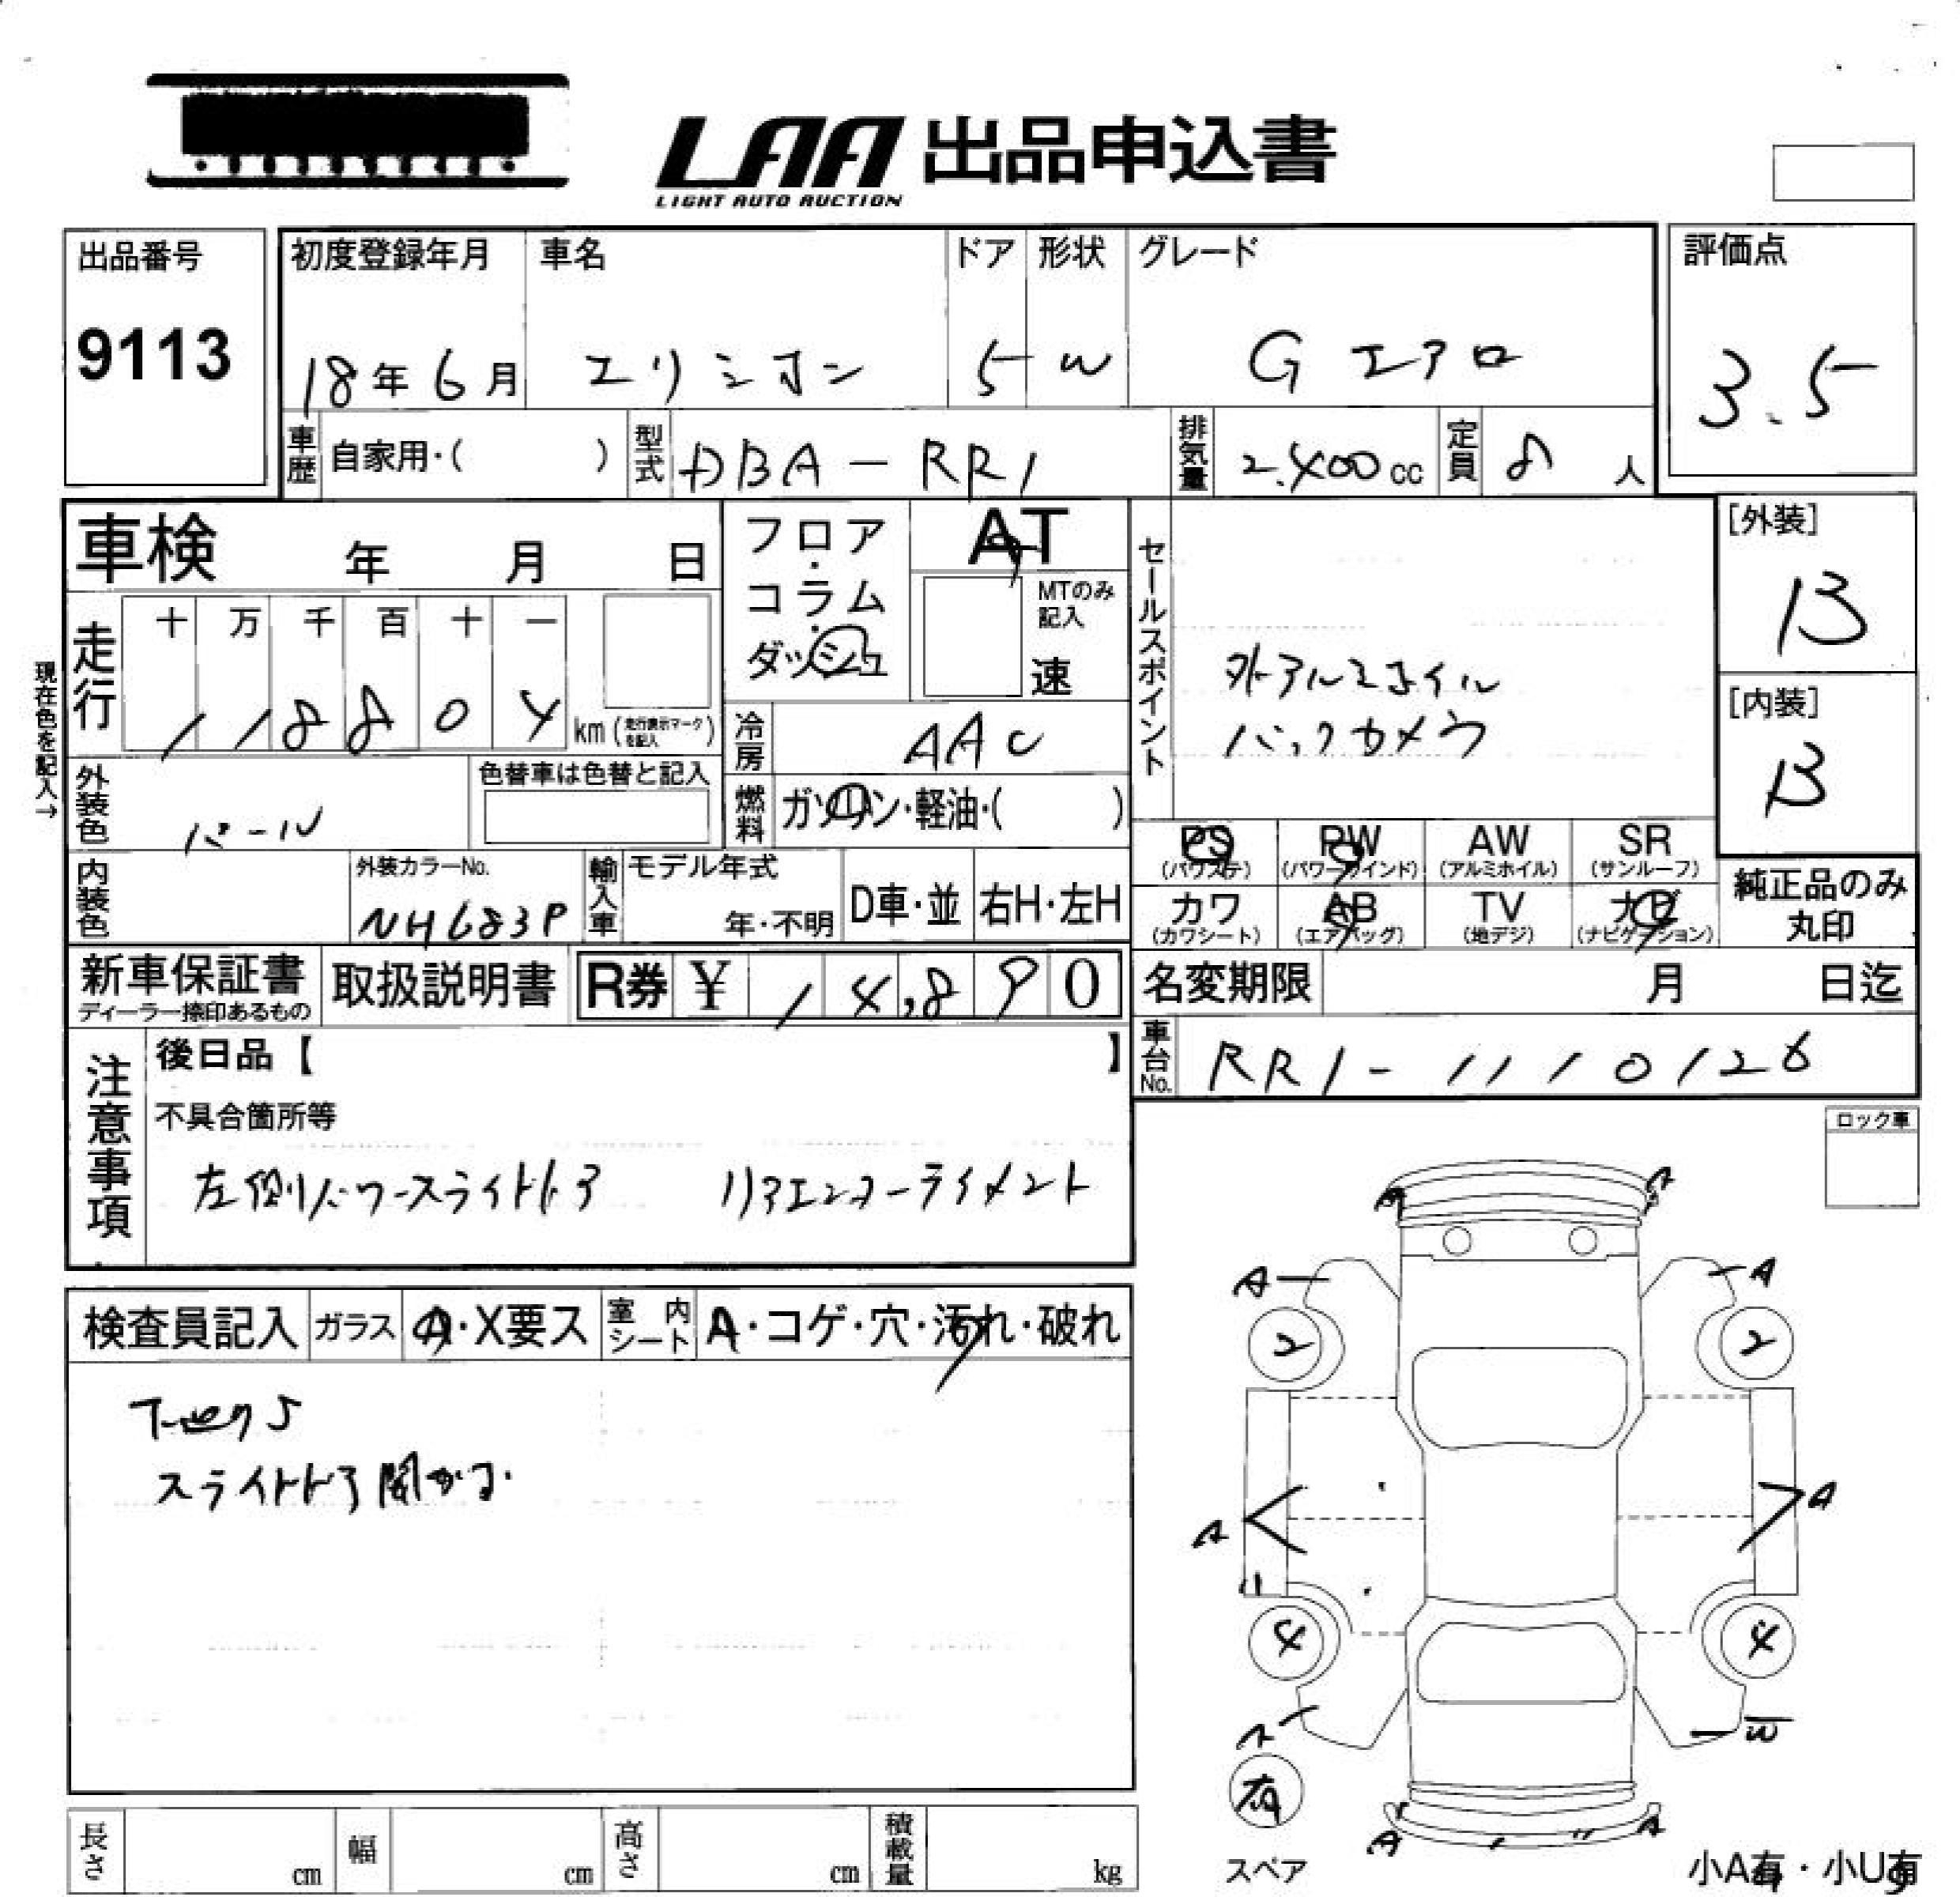 LAA 出品申込書
LIGHT AUTO AUCTION
出品番号
9113
初度登録年月 車名 ドア 形状 グレード
18年6月 エリシオン 5 W G エアロ
評価点
3.5
車歴 自家用・( ) 型式 DBA-RR1 排気量 2.400cc 定員 8人
車検 年 月 日
フロア・コラム・ダッシュ
AT
MTのみ記入
速
セールスポイント
外アルミホイル
バックカメラ
[外装]
B
[内装]
B
現在色を記入→
走行 十 万 千 百 十 一
118804 km (走行表示マークを記入)
冷房 AAC
外装色 パール
色替車は色替と記入
燃料 ガソリン・軽油・( )
PS (パワステ) PW (パワーウインド) AW (アルミホイル) SR (サンルーフ)
カワ (カワシート) AB (エアバッグ) TV (地デジ) ナビ (ナビゲーション)
純正品のみ丸印
内装色
外装カラーNo.
NH683P
輸入車 モデル年式
年・不明
D車・並 右H・左H
新車保証書
ディーラー捺印あるもの
取扱説明書
R券 ¥ 14,890
名変期限 月 日迄
車台No. RR1-1110126
注意事項
後日品【 】
不具合箇所等
左側パワースライドドア リアエンターテイメント
ロック車
検査員記入 ガラス A・X要ス 室内シート A・コゲ・穴・汚れ・破れ
スライドドア開かず
A A
A A
2 2
A A
4 4
A W
有
スペア
A A
長さ cm 幅 cm 高さ cm 積載量 kg
小A有・小U有